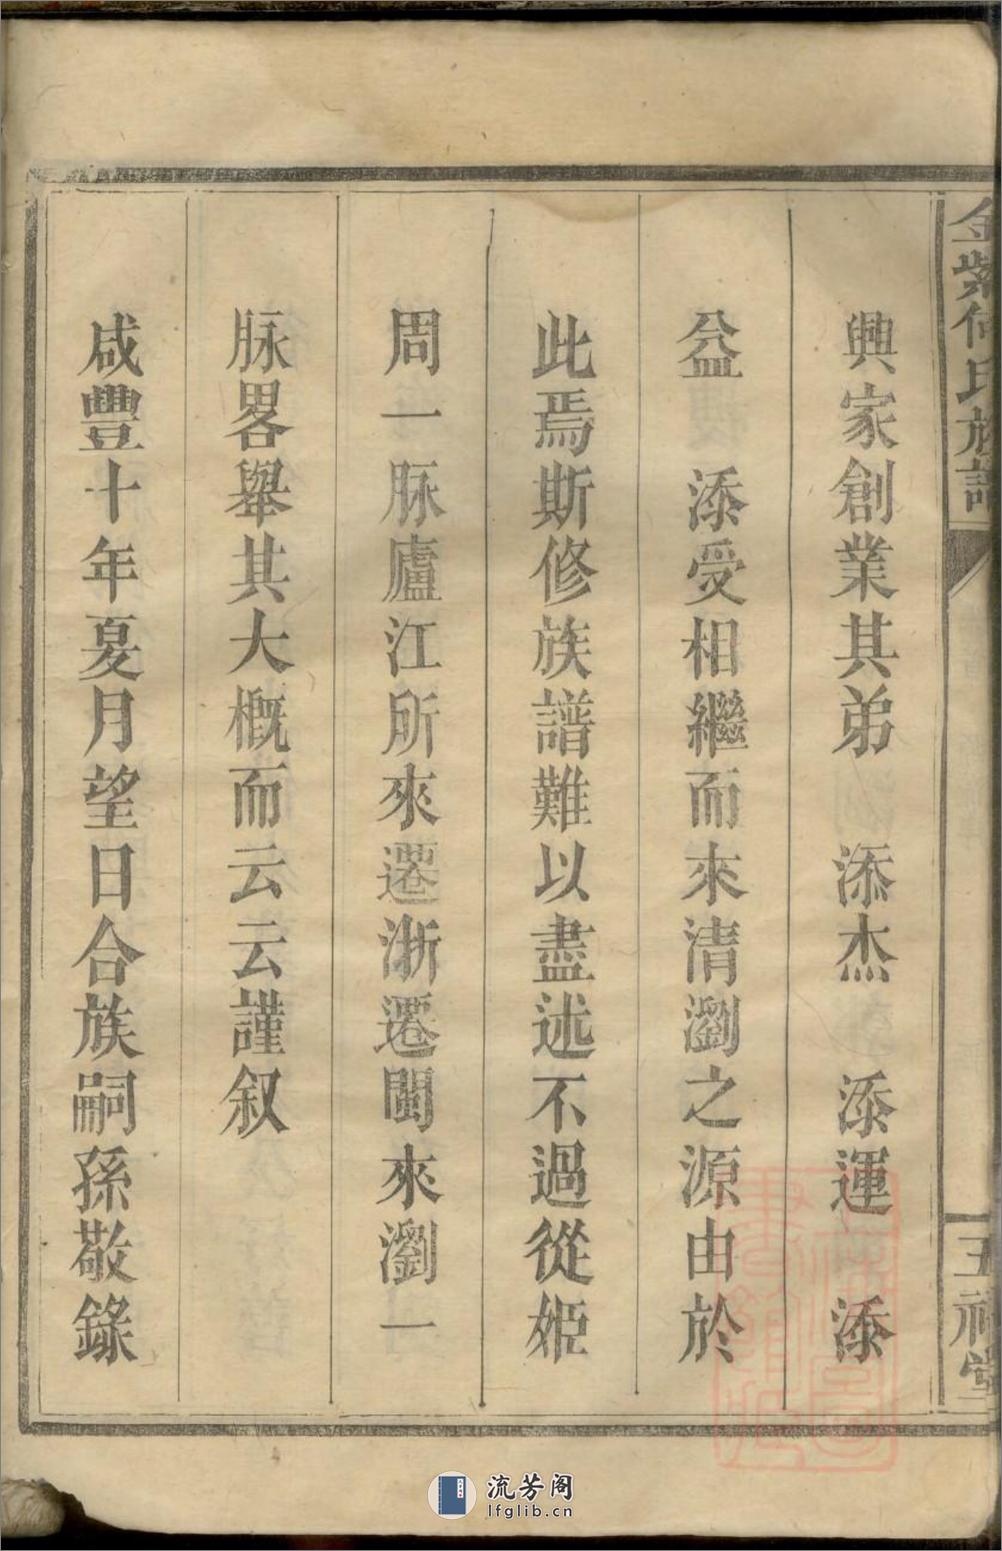 興家創業其弟　添杰　添運　添
益　添受相繼而來清瀏之源由於
此焉斯修族譜難以盡述不過從姬
周一脉廬江所來遷浙遷閩來瀏一
脉畧舉其大概而云云謹叙
咸豐十年夏月望日合族嗣孫敬錄
金紫何氏族譜
五福堂
流芳阁
lfglib.cn